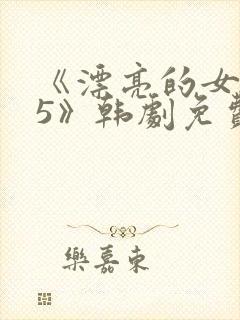 《漂亮的女
5》韩劇免費
樂嘉東